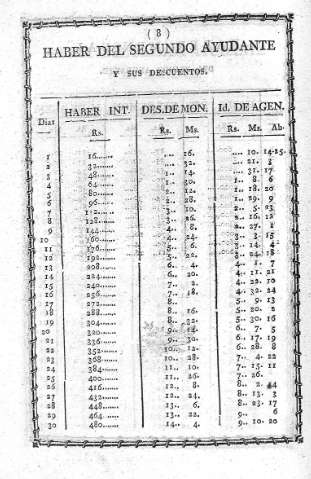 ( 8 )
HABER DEL SEGUNDO AYUDANTE
Y SUS DESCUENTOS.
Dias HABER INT. DES.DE MON. Id. DE AGEN.
Rs. Rs. Ms. Rs. Ms. Ab.
1 16....... .... 16. .... 10. 14-25.
2 32....... .... 32. .... 21. 3
3 48....... 1.. 14. .... 31. 17
4 64....... 1.. 30. 1.. 8. 6
5 80....... 2.. 12. 1.. 18. 20
6 96....... 2.. 28. 1.. 29. 9
7 112....... 3.. 10. 2.. 5. 23
8 128....... 3.. 26. 2.. 16. 12
9 144....... 4.. 8. 2.. 27. 1
10 160....... 4.. 24. 3.. 3. 15
11 176....... 5.. 6. 3.. 14. 4
12 192....... 5.. 22. 3.. 24. 18
13 208....... 6.. 4. 4.. 1. 7
14 224....... 6.. 20. 4.. 11. 21
15 240....... 7.. 2. 4.. 22. 10
16 256....... 7.. 18. 4.. 32. 24
17 272....... 8.. 5.. 9. 13
18 288....... 8.. 16. 5.. 20. 2
19 304....... 8.. 32. 5.. 30. 16
20 320....... 9.. 14. 6.. 7. 5
21 336....... 9.. 30. 6.. 17. 19
22 352....... 10.. 12. 6.. 28. 8
23 368....... 10.. 28. 7.. 4. 22
24 384....... 11.. 10. 7.. 15. 11
25 400....... 11.. 26. 7.. 26.
26 416....... 12.. 8. 8.. 2. 14
27 432....... 12.. 24. 8.. 13. 3
28 448....... 13.. 6. 8.. 23. 17
29 464....... 13.. 22. 9.. 6
30 480....... 14.. 4. 9.. 10. 20